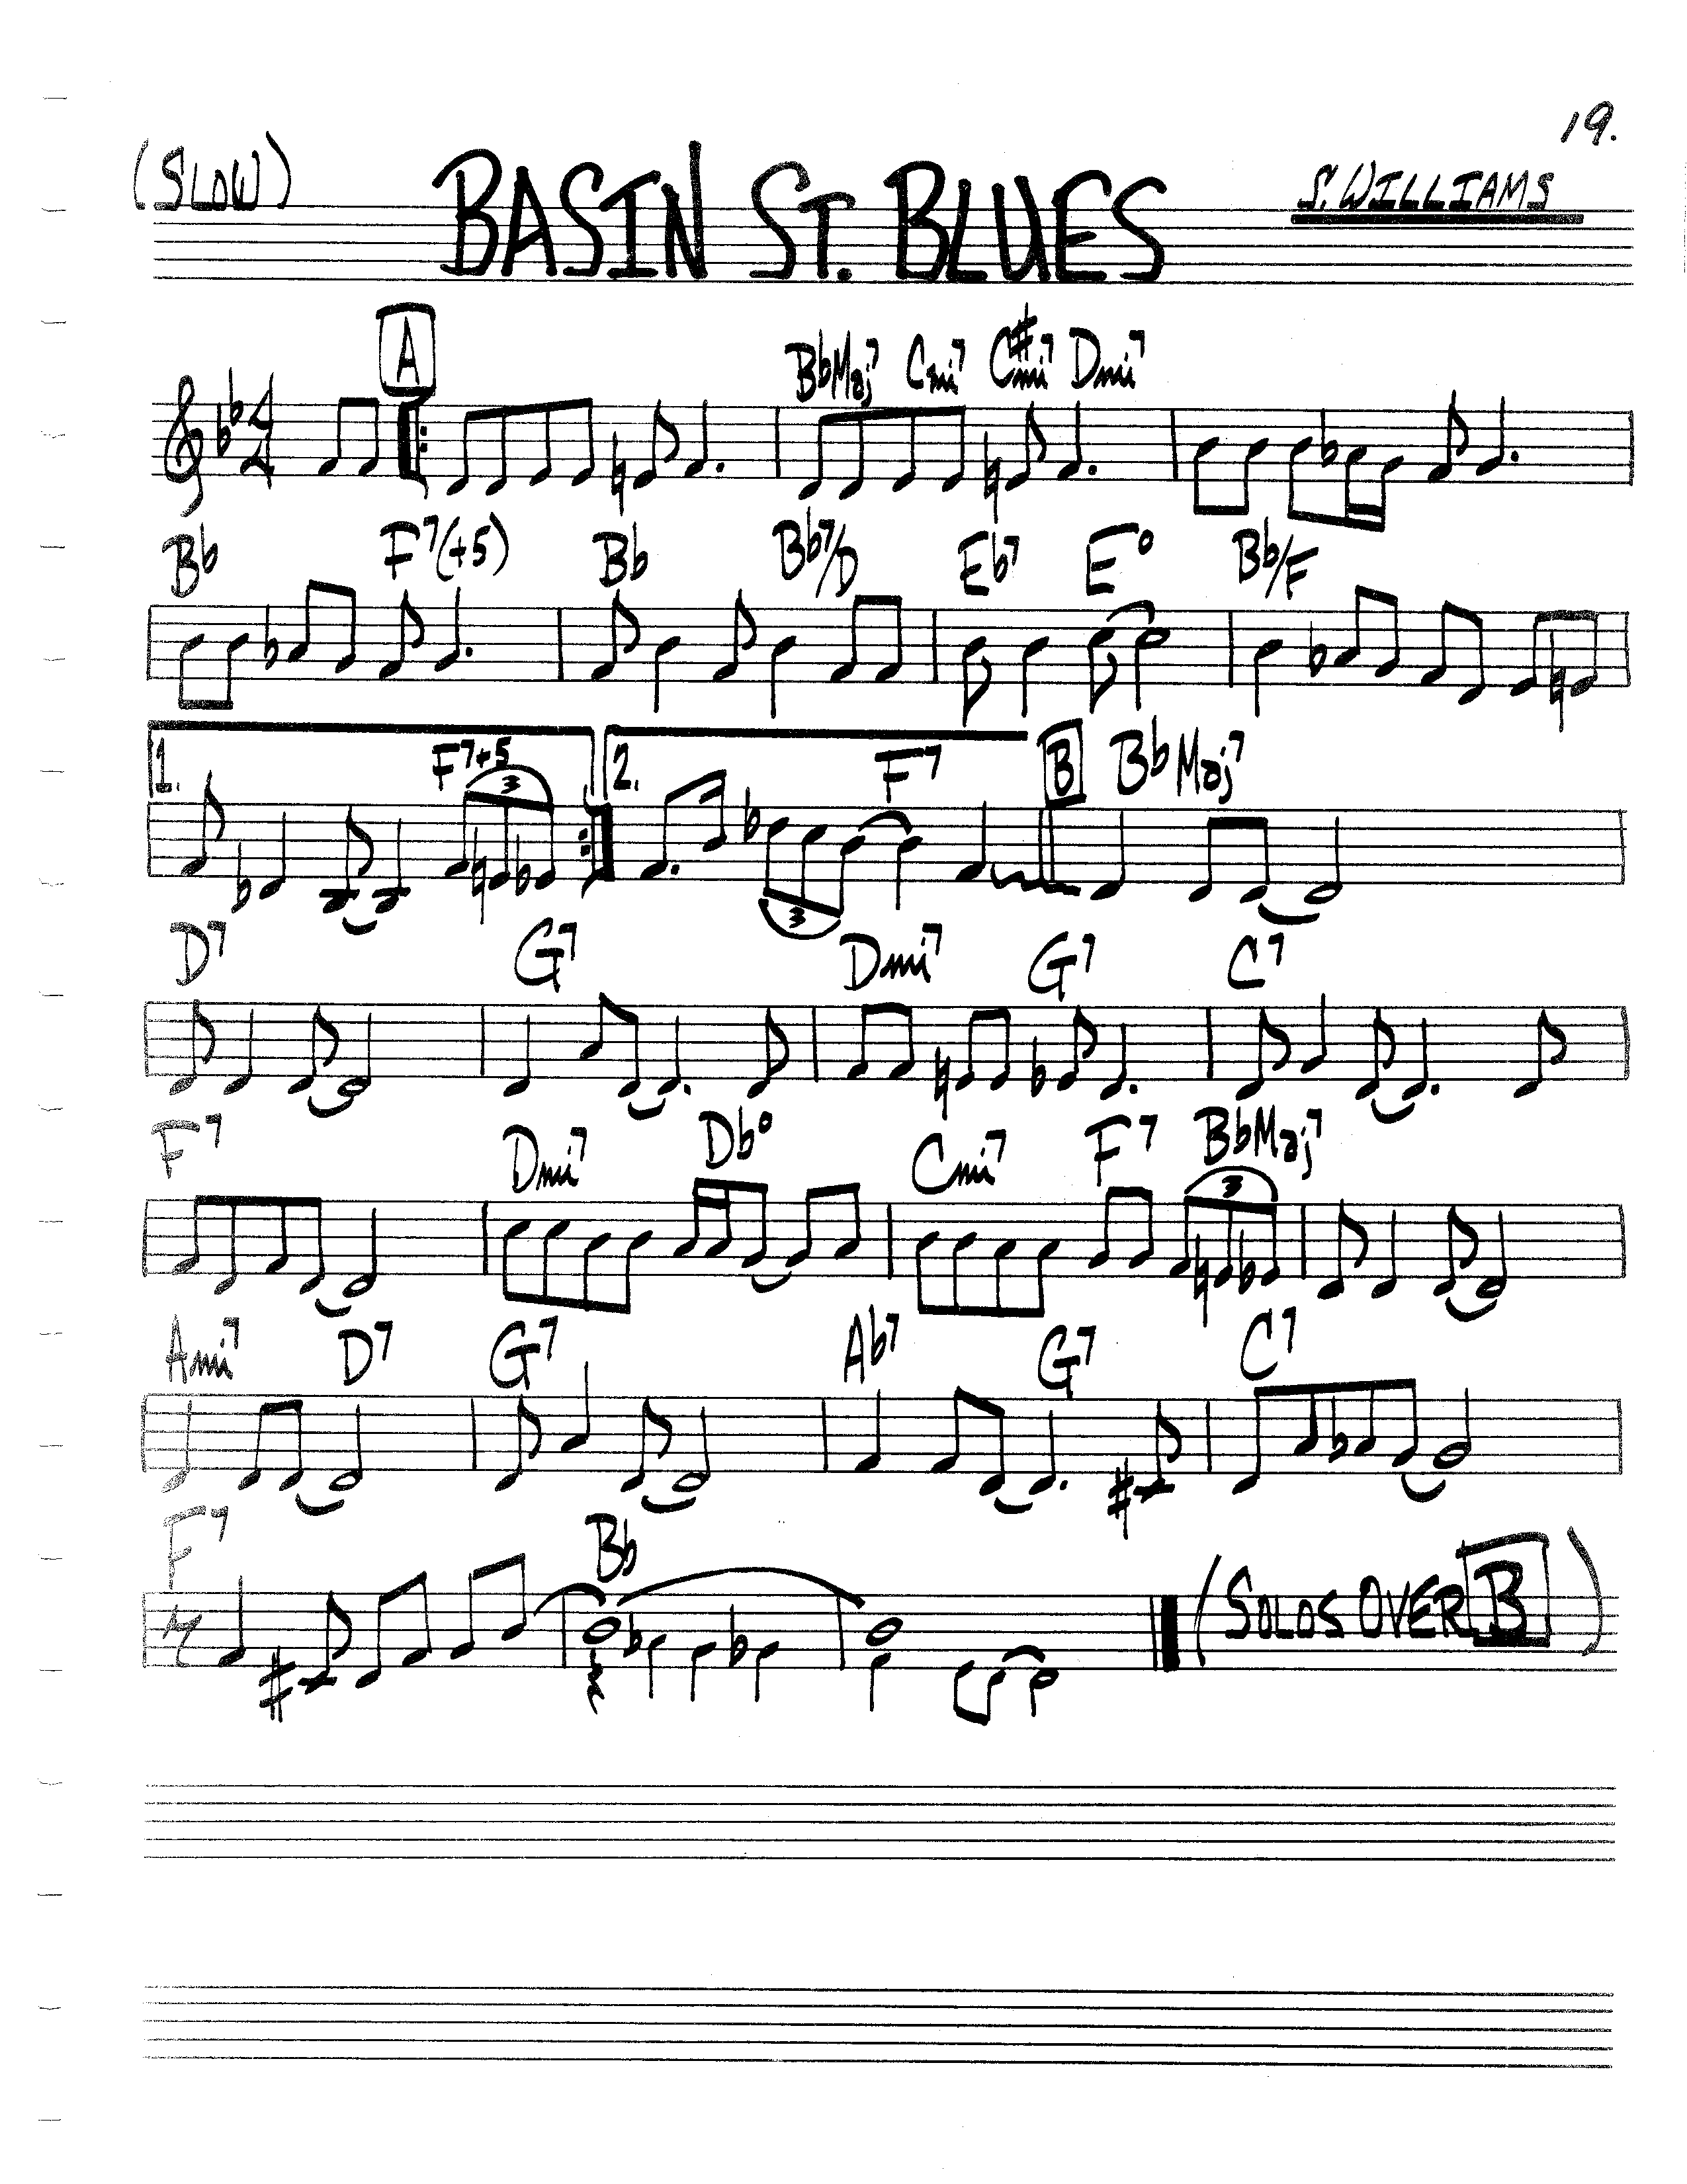 19.
(SLOW) BASIN ST. BLUES S. WILLIAMS
A BbMaj7 Cmi7 C#mi7 Dmi7
4 4
Bb F7(+5) Bb Bb7/D Eb7 E° Bb/F
1. F7+5 3 2. F7 B BbMaj7
3
D7 G7 Dmi7 G7 C7
F7 Dmi7 Db° Cmi7 F7 BbMaj7
3
Ami7 D7 G7 Ab7 G7 C7
F7 Bb
(SOLOS OVER B)